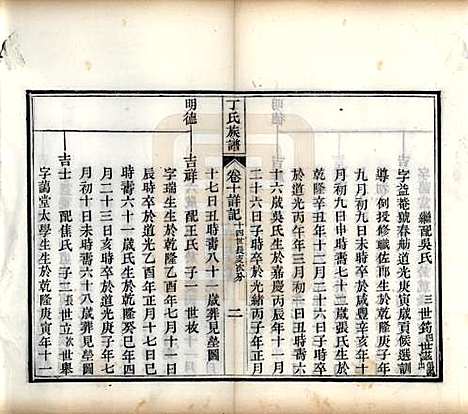 繼配吳氏 三世鈞
字益菴號春舫道光庚寅歲貢候選訓
導 例授修職佐郎生於嘉慶丙辰年十
月初九日未時卒於咸豐辛亥年十一
月初九日申時壽七十二歲張氏生於
乾隆辛丑年十二月二十三日子時卒
於道光丙午年三月初二日丑時壽六
十六歲吳氏生於嘉慶丙辰年十一月
二十六日子時卒於光緒丙子年正月
丁氏族譜
卷十詳記
二
十七日丑時壽八十一歲葬見塋圖
明德 吉祥 配王氏 子一 世坡
字瑞生生於乾隆乙酉年七月十一日
辰時卒於道光乙酉年正月十七日巳
時壽六十一歲氏生於乾隆癸巳年四
月二十三日亥時卒於道光 年十二
月初十日未時壽六十八歲葬見塋圖
吉士 配焦氏 子二 張出 世立 世舉
字蔼堂太學生生於乾隆庚寅年十一